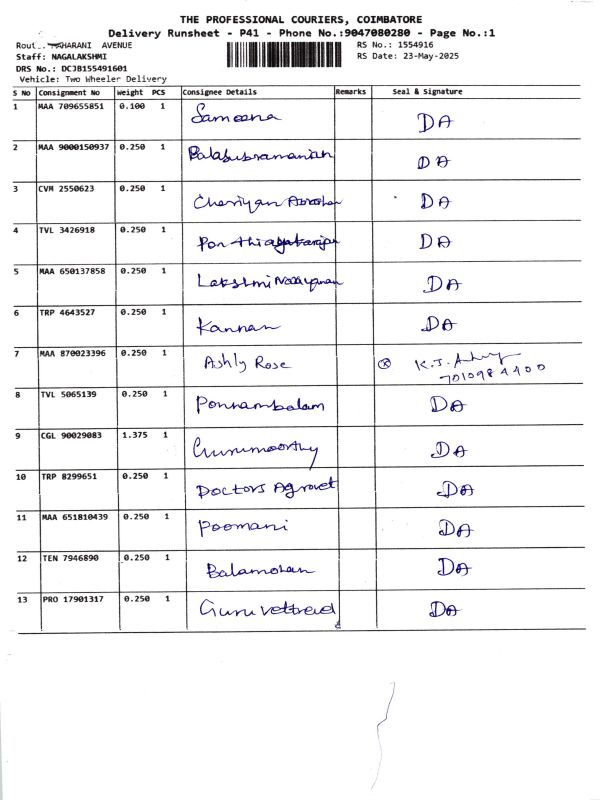 THE PROFESSIONAL COURIERS, COIMBATORE
Delivery Runsheet - P41 - Phone No.:9047080280 - Page No.:1
HARANI AVENUE RS No.: 1554916
Staff: NAGALAKSHMI RS Date: 23-May-2025
DRS No.: DCJB155491601
Vehicle: Two Wheeler Delivery
S No Consignment No Weight PCS Consignee Details Remarks Seal & Signature
1 MAA 709655851 0.100 1 Sameena DA
2 MAA 9000150937 0.250 1 Balasubramanian DA
3 CVM 2550623 0.250 1 Cheriyan Abraham DA
4 TVL 3426918 0.250 1 Pon DA
5 MAA 650137858 0.250 1 Lakshmi Narayanan DA
6 TRP 4643527 0.250 1 Kannan DA
7 MAA 870023396 0.250 1 Ashly Rose K.J.
7010984400
8 TVL 5065139 0.250 1 Ponnambalam DA
9 CGL 90029083 1.375 1 Gurumoorthy DA
10 TRP 8299651 0.250 1 Doctors Agrovet DA
11 MAA 651810439 0.250 1 Poomani DA
12 TEN 7946890 0.250 1 Balamohan DA
13 PRO 17901317 0.250 1 DA